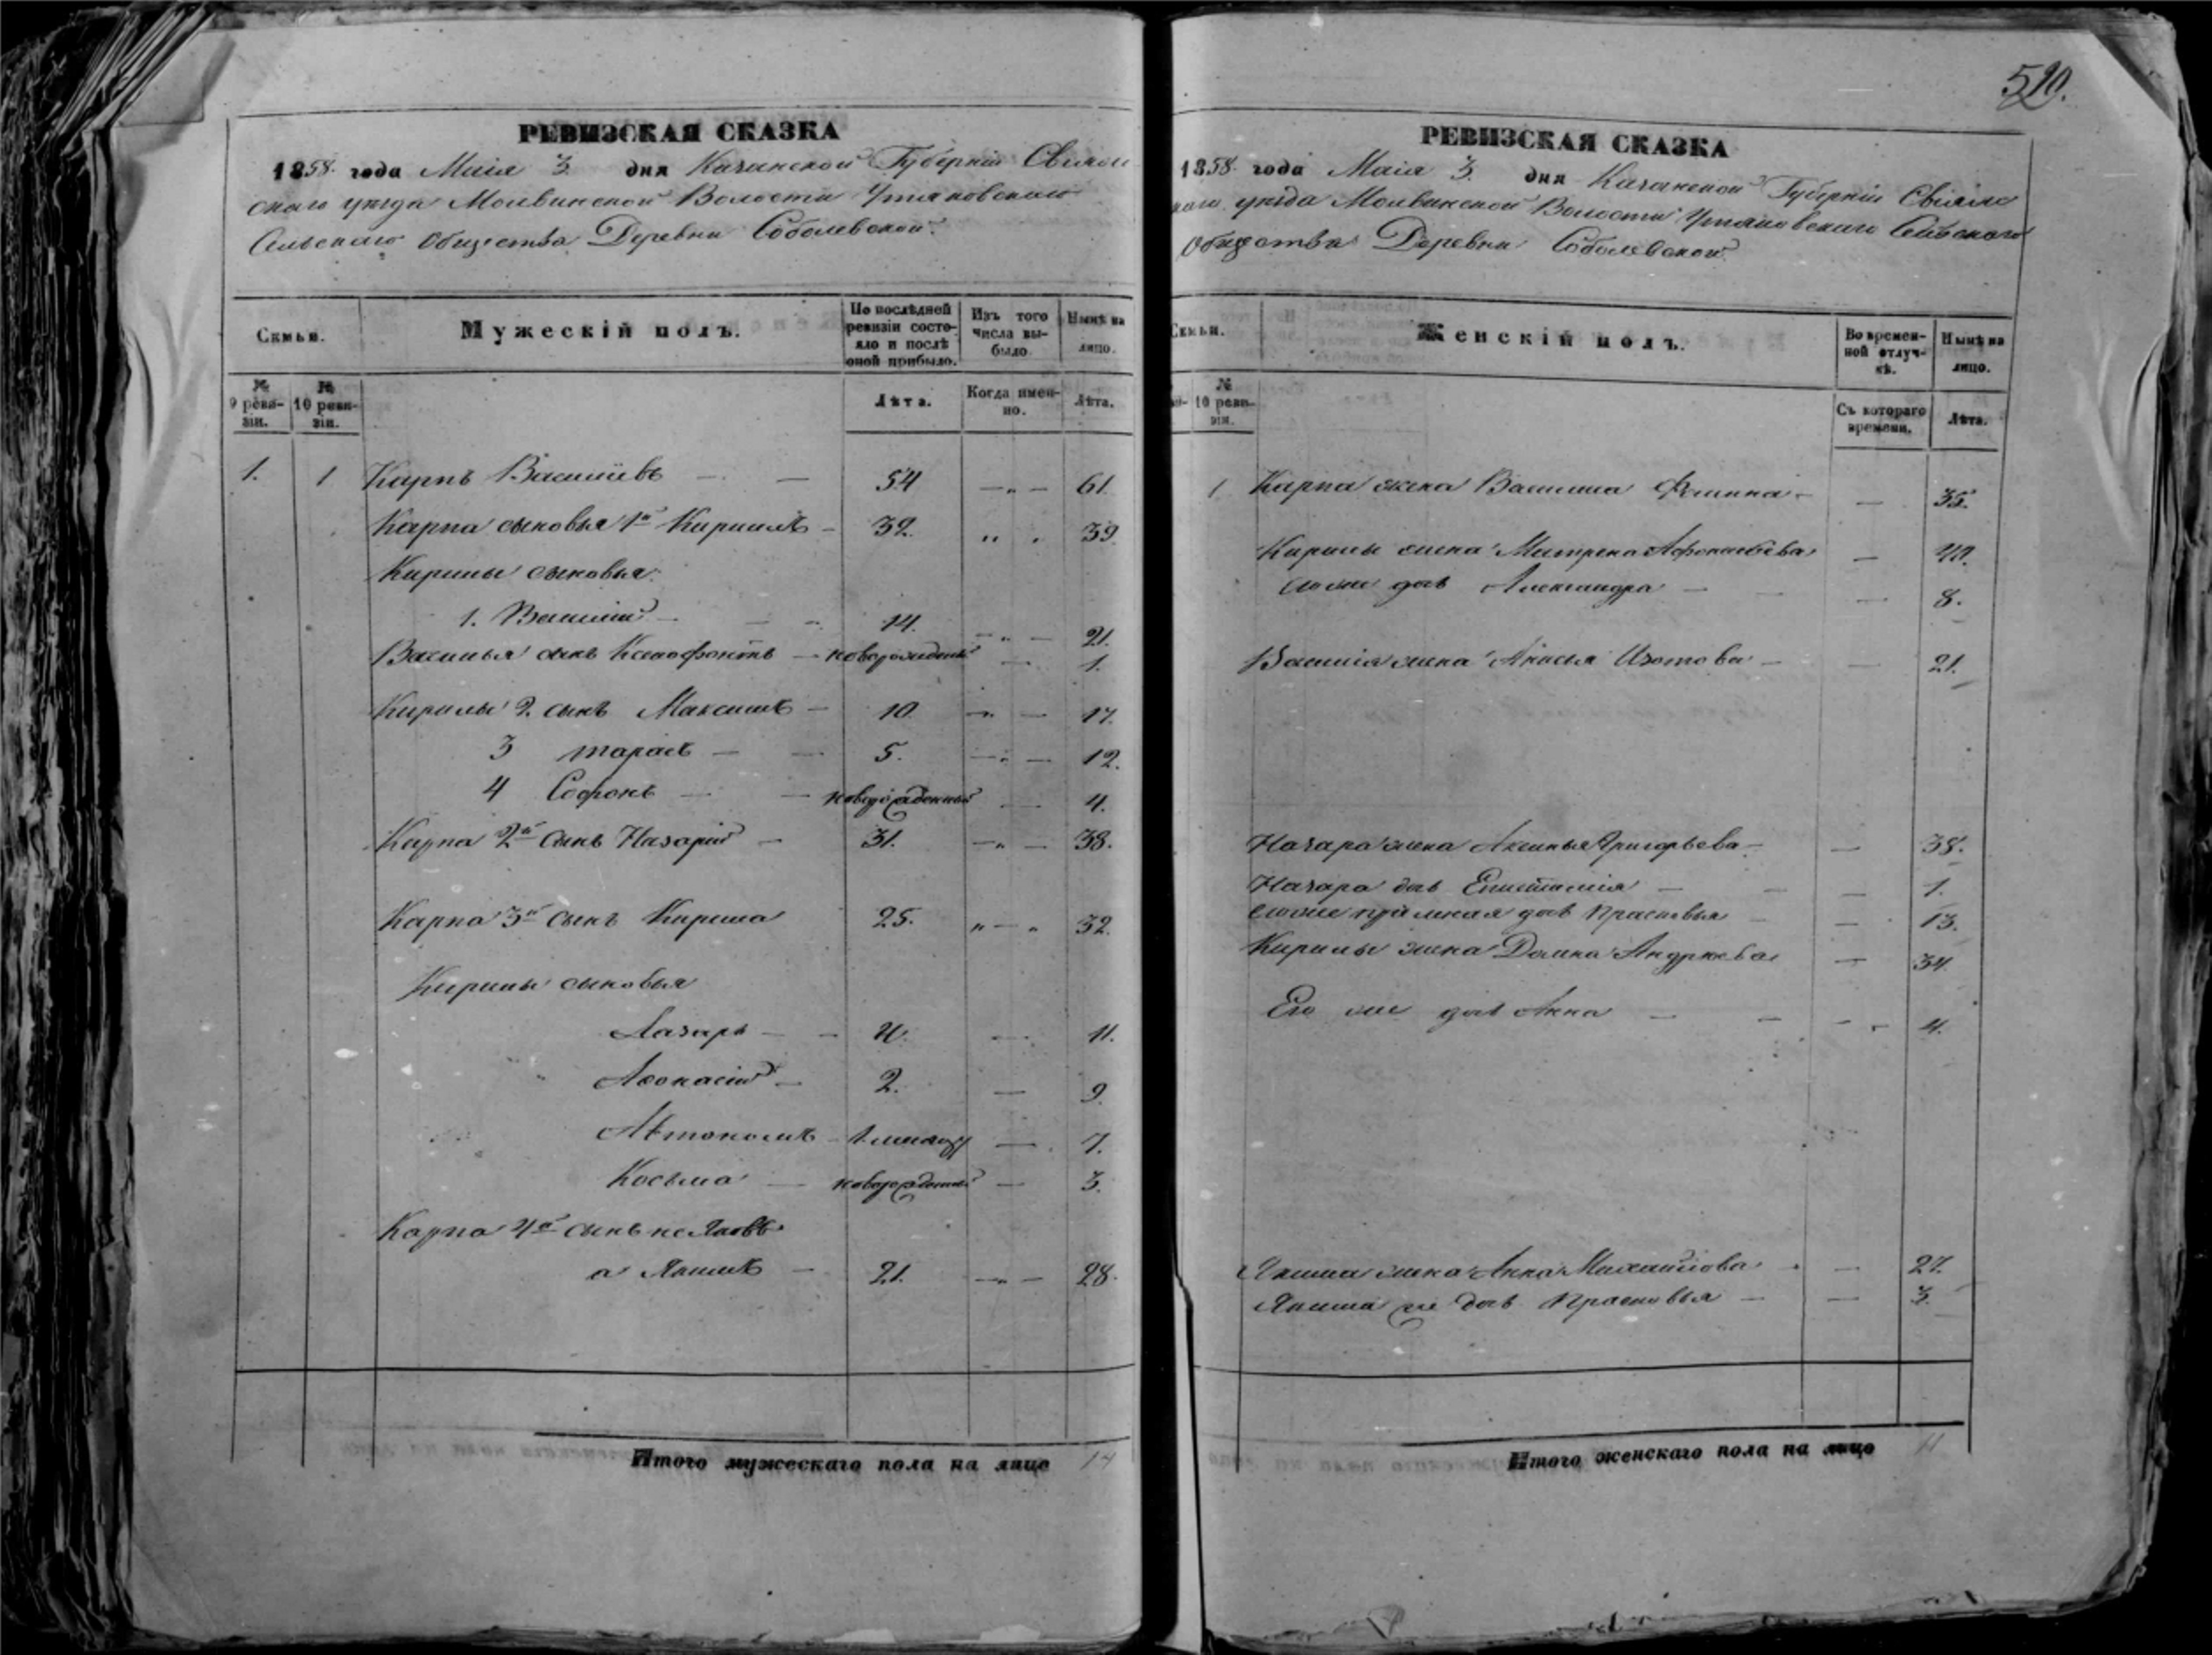 РЕВИЗСКАЯ СКАЗКА
1858 года Маія 3. дня Казанской Губерніи Свіяж
скаго уѣзда Молвинской Волости Утяковскаго
Сельскаго Общества Деревни Соболевской.
Семьи.
Мужескій полъ.
По послѣдней ревизіи состояло и послѣ оной прибыло.
Изъ того числа выбыло.
Нынѣ на лицо.
№ 9 ревизіи.
№ 10 ревизіи.
Лѣта.
Когда именно.
Лѣта.
1. 1 Карпъ Васильевъ — — 54 —„— 61.
Карпа сыновья 1й Кирилъ — 32. „ . 39.
Кирилы сыновья:
1. Василій — — 14. —„— 21.
Василья сынъ Ксенофонтъ — новорожденный — 1.
Кирилы 2. сынъ Максимъ — 10. —„— 17.
3 тарасъ — — 5. —„— 12.
4 Софонъ — — новорожденный — 4.
Карпа 2й сынъ Назарій — 31. —„— 38.
Карпа 3й сынъ Кирила 25. „—„ 32.
Кирилы сыновья
Лазарь — — 4. — 11.
Афонасій — 2. — 9.
Автономъ — — 7.
Косьма — новорожденный — 3.
Карпа 4й сынъ не Яковъ
а Якимъ — 21. —„— 28.
Итого мужескаго пола на лицо 14
510.
РЕВИЗСКАЯ СКАЗКА
1858 года Маія 3. дня Казанской Губерніи Свіяж
скаго уѣзда Молвинской Волости Утяковскаго Сельскаго
Общества Деревни Соболевской
Семьи.
Женскій полъ.
Во временной отлучкѣ.
Нынѣ на лицо.
№ 10 ревизіи.
Съ котораго времени.
Лѣта.
1 Карпа жена Василиса Фомина — — 35.
Кирилы жена Матрена Афонасьева — 40.
его же дочь Александра — — — 8.
Василія жена Анисья Изотова — — 21.
Назара жена Аксинья Григорьева — — 38.
Назара дочь — — — 1.
его же дочь Прасковья — — 13.
Кирилы жена Домна Андреева — 34.
Его же дочь Анна — — — 4.
Якима жена Анна Михайлова — — 27.
Якима же дочь Прасковья — — 3.
Итого женскаго пола на лицо 11